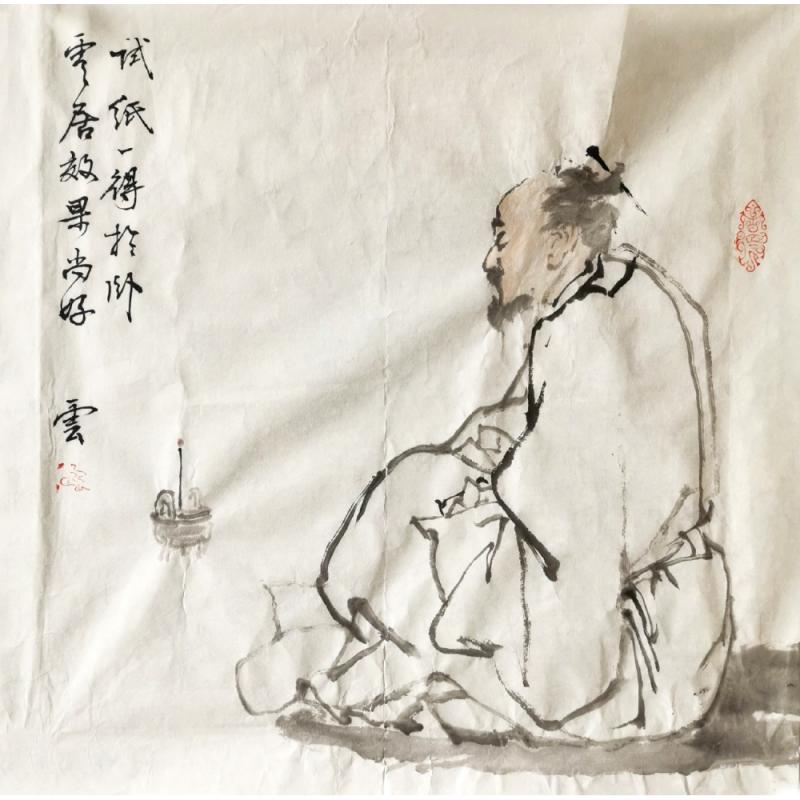 试纸一得於卧
雲居效果尚好
雲